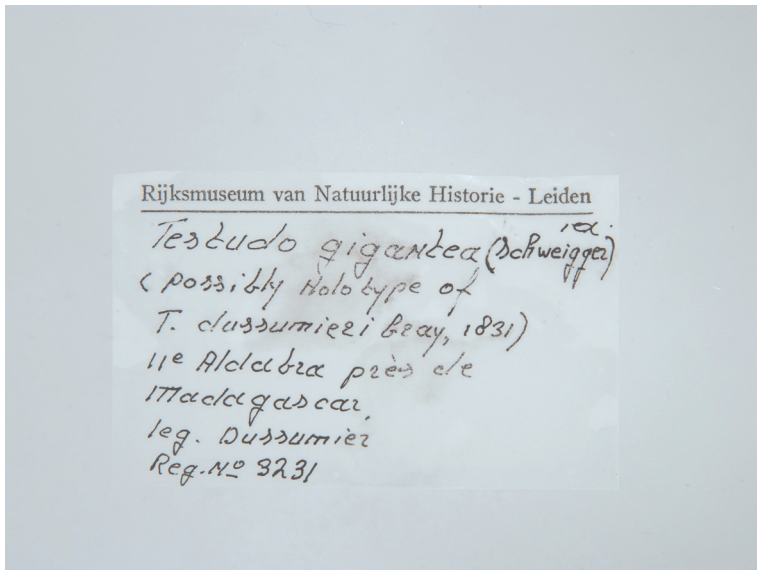 Rijksmuseum van Natuurlijke Historie - Leiden
Testudo gigantea (Schweigger)
(possibly Holotype of
T. dussumieri Gray, 1831)
Ile Aldabra près de
Madagascar,
leg. Dussumier
Reg. No 3231